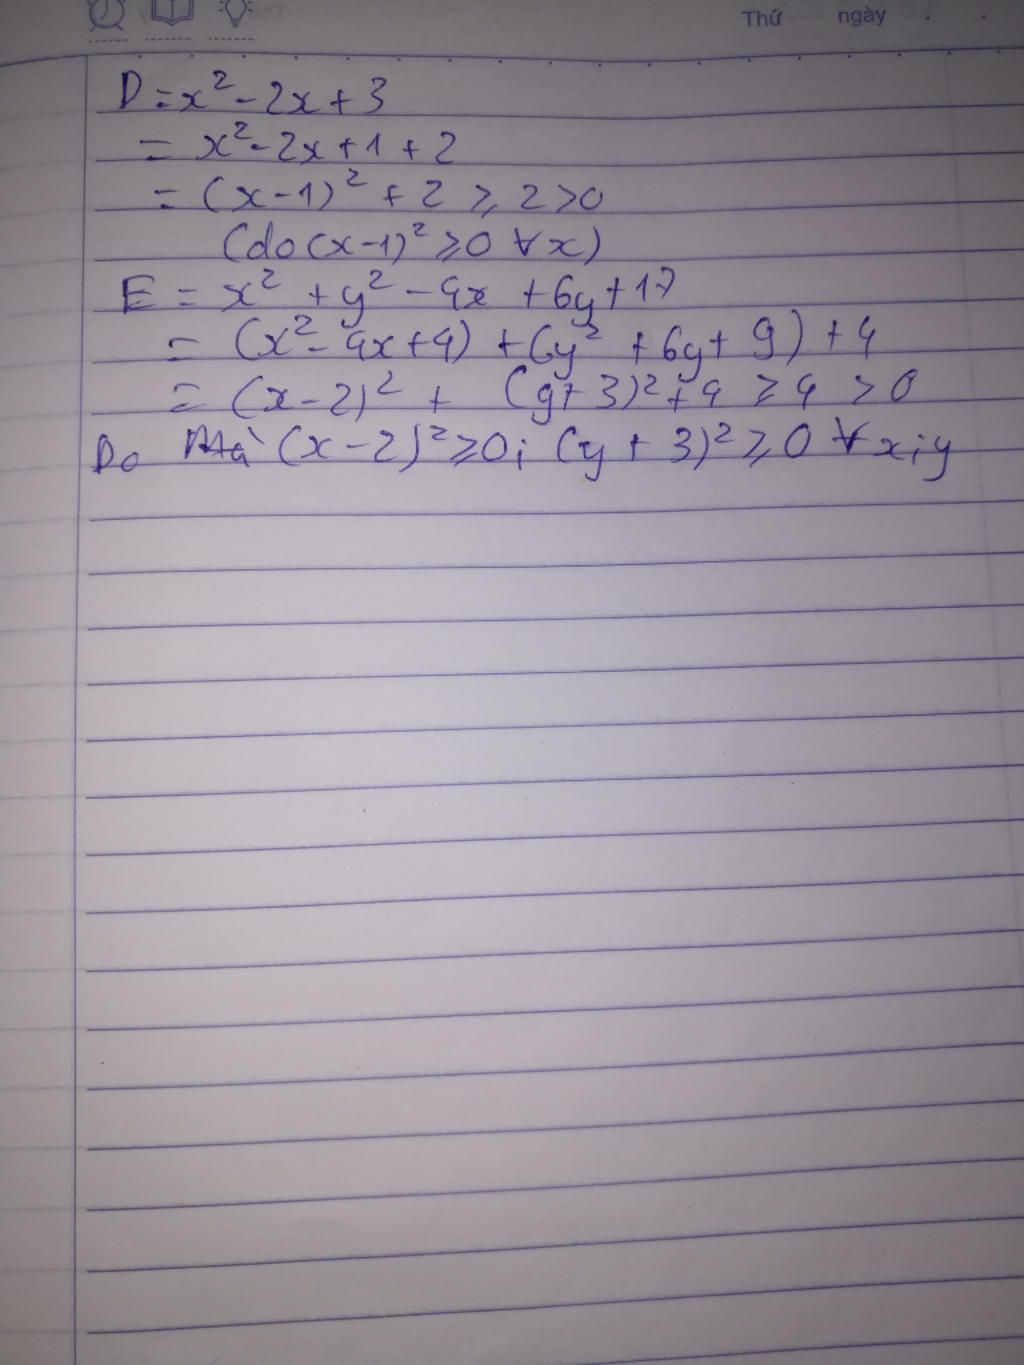 Thứ ngày . .
D = x² - 2x + 3
= x² - 2x + 1 + 2
= (x - 1)² + 2 ≥ 2 > 0
(do (x - 1)² ≥ 0 ∀ x)
E = x² + y² - 4x + 6y + 17
= (x² - 4x + 4) + (y² + 6y + 9) + 4
= (x - 2)² + (y + 3)² + 4 ≥ 4 > 0
Do Mà (x - 2)² ≥ 0 ; (y + 3)² ≥ 0 ∀ x ; y